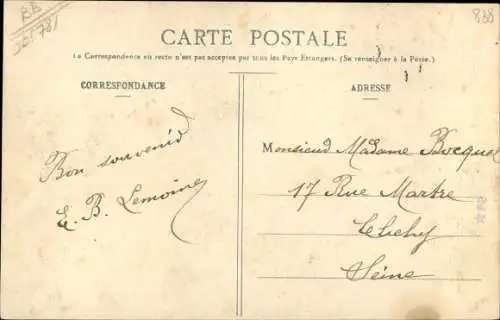 838
CARTE POSTALE
La Correspondance au recto n'est pas acceptée par tous les Pays Étrangers. (Se renseigner à la Poste).
CORRESPONDANCE
ADRESSE
Bon souvenid
E. B. Lemoine
Monsieud Madame Bocquel
17 Rue Martre
Clichy
Seine